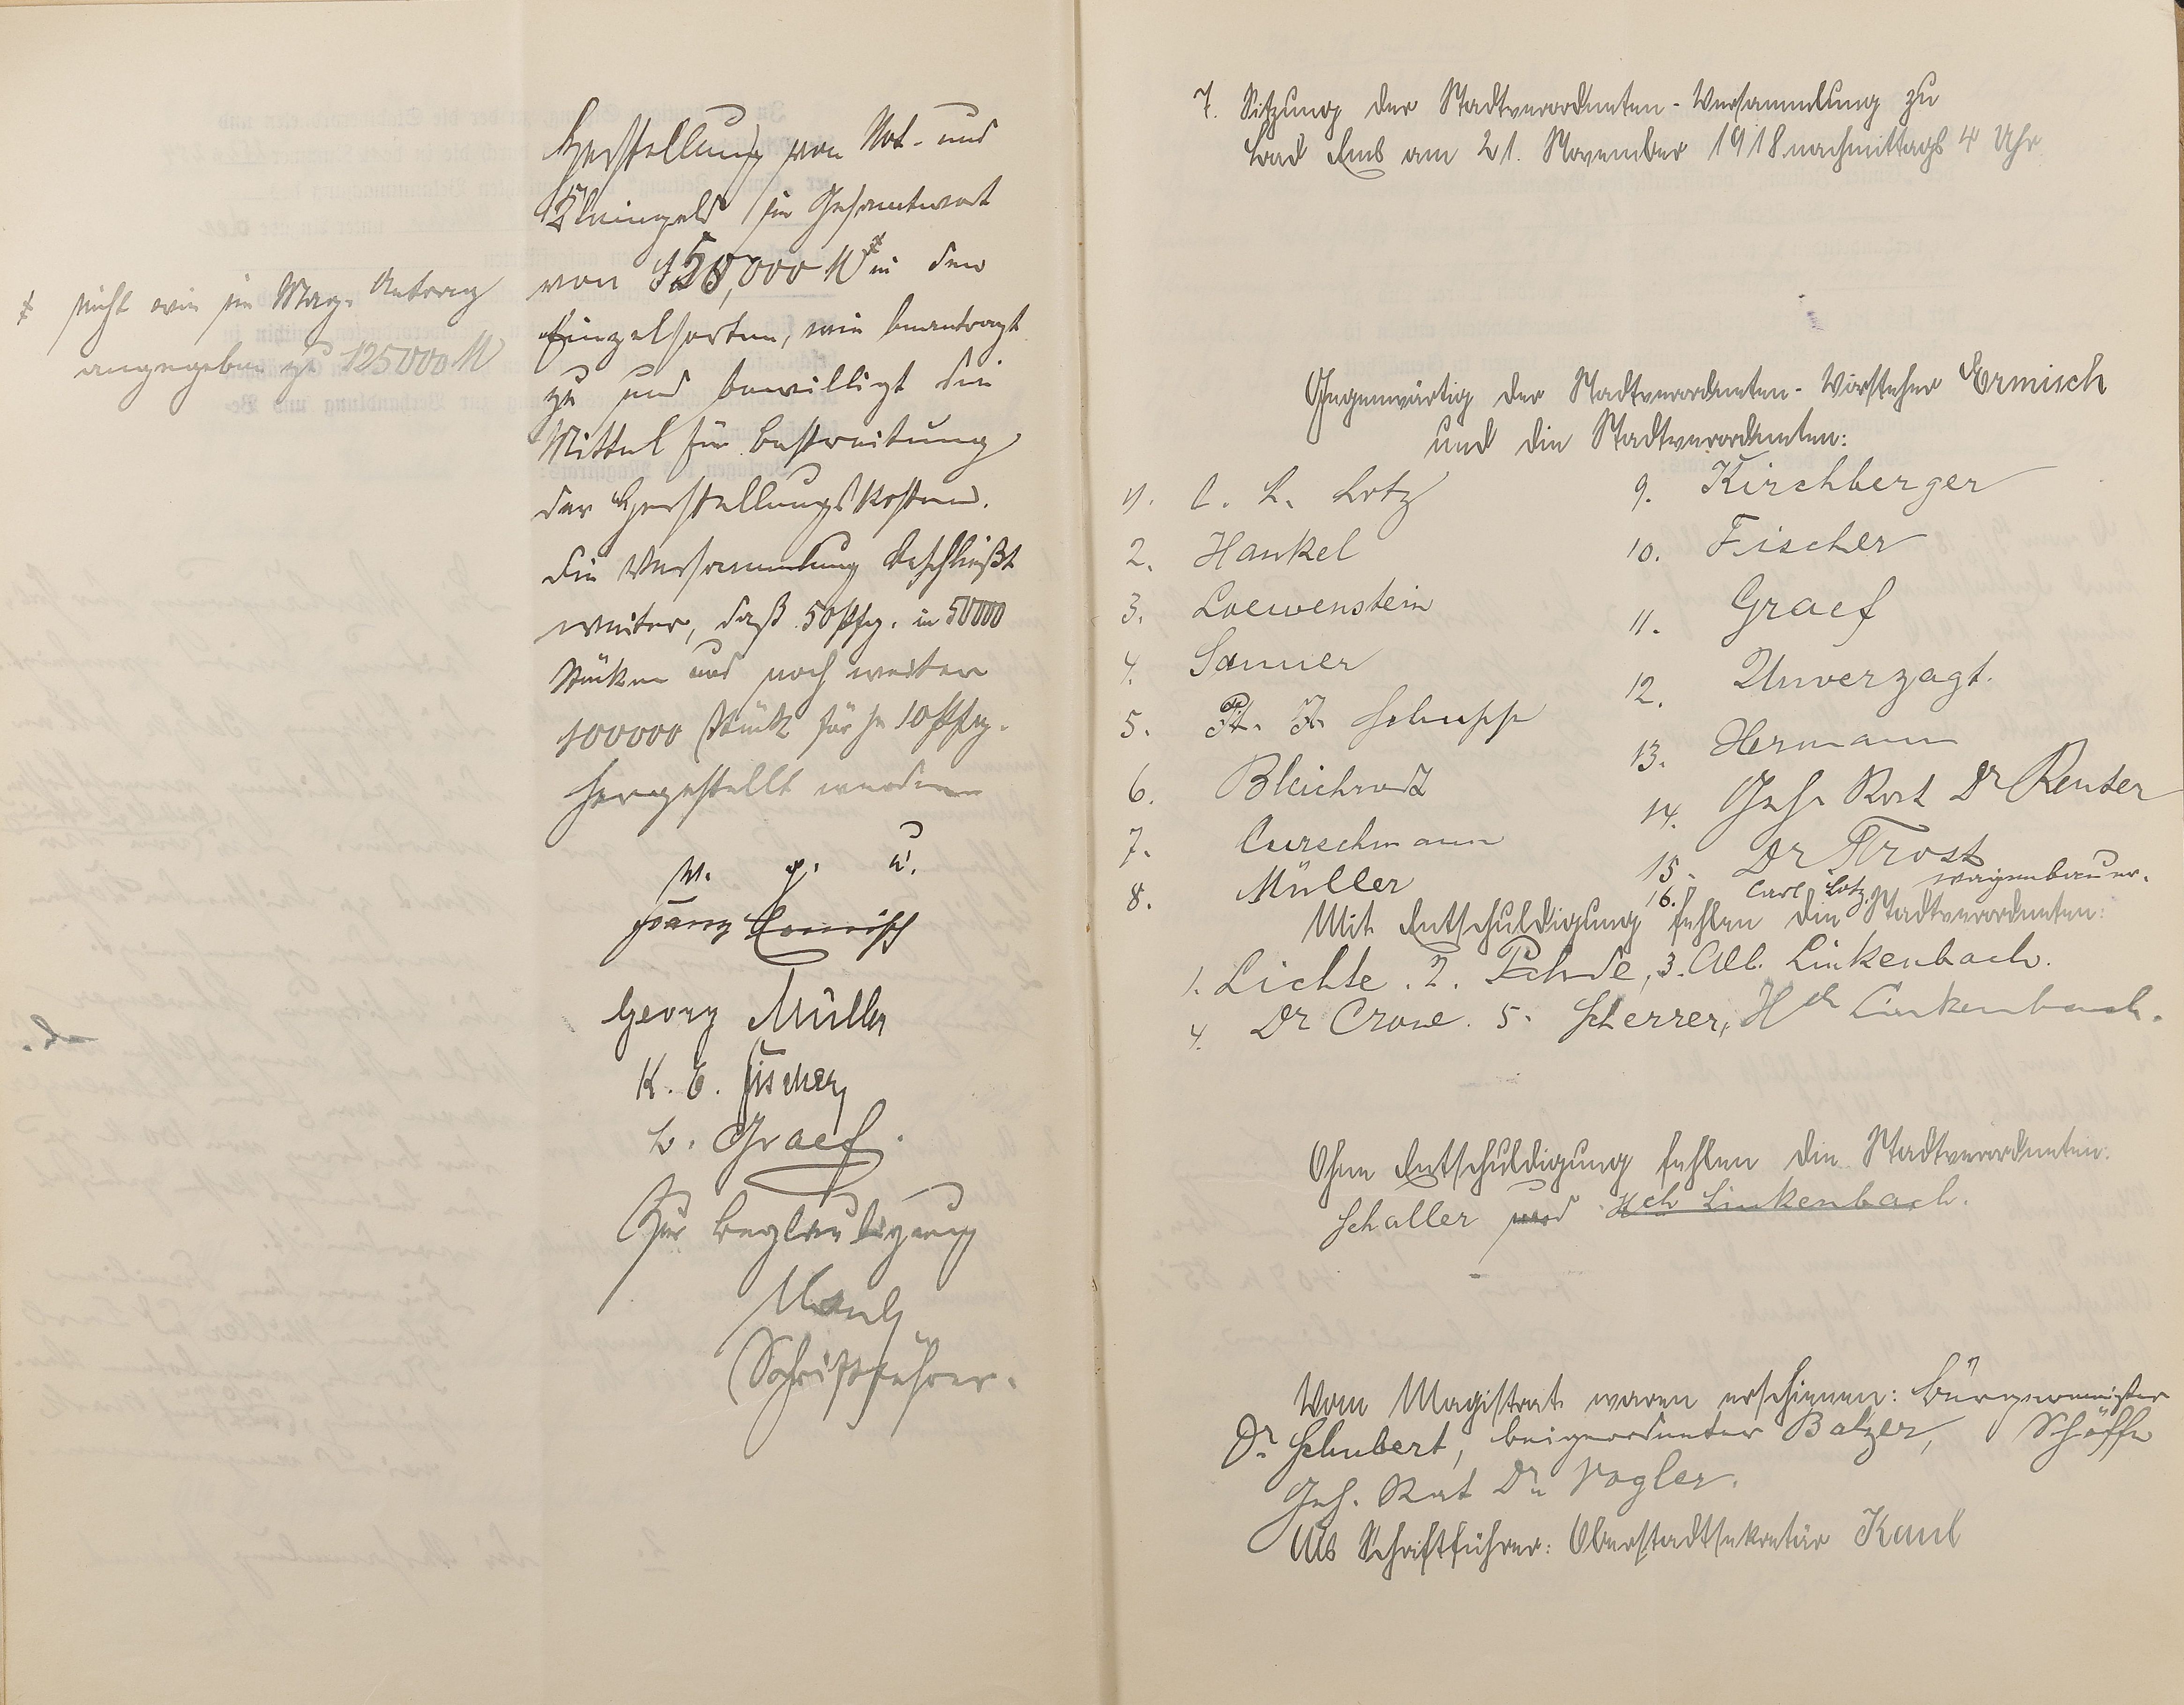 Herstellung von Not- und
Kleingeld im Gesamtwert
von 150,000 M ‡ in den
Einzelsorten, wie beantragt
zu und bewilligt die
Mittel für Bestreitung
der Herstellungskosten.
Die Versammlung beschließt
weiter, daß 50 Pfg. in 50000
Stücken und noch weitere
100000 Stück für je 10 Pfg.
hergestellt werden
‡ nicht wie im Mag. Antrag
angegeben zu 125000 M
v. g. u.
Franz Ermisch
Georg Müller
K. E. Fischer
L. Graef.
Zur Beglaubigung
Kaul
Schriftführer.
7. Sitzung der Stadtverordneten-Versammlung zu
Bad Ems am 21. November 1918 nachmittags 4 Uhr
Gegenwärtig der Stadtverordneten-Vorsteher Ermisch
und die Stadtverordneten:
1. C. L. Lotz
2. Hankel
3. Loewenstein
4. Sanner
5. Schupp
6. Bleichrodt
7. Curschmann
8. Müller
9. Kirchberger
10. Fischer
11. Graef
12. Unverzagt.
13. Hermann
14. Geh. Rat Dr Reuter
15. Dr Trost
16. Carl Lotz, Wagenbauer.
Mit Entschuldigung fehlen die Stadtverordneten:
1. Lichte. 2. 3. Alb. Linkenbach.
4. Dr Crone. 5. Scherrer, Hch Linkenbach.
Ohne Entschuldigung fehlen die Stadtverordneten:
Schaller und Hch Linkenbach.
Vom Magistrat waren erschienen: Bürgermeister
Dr Schubert, Beigeordneter Balzer, Schöffe
Geh. Rat Dr. Vogler.
Als Schriftführer: Oberstadtsekretär Kaul